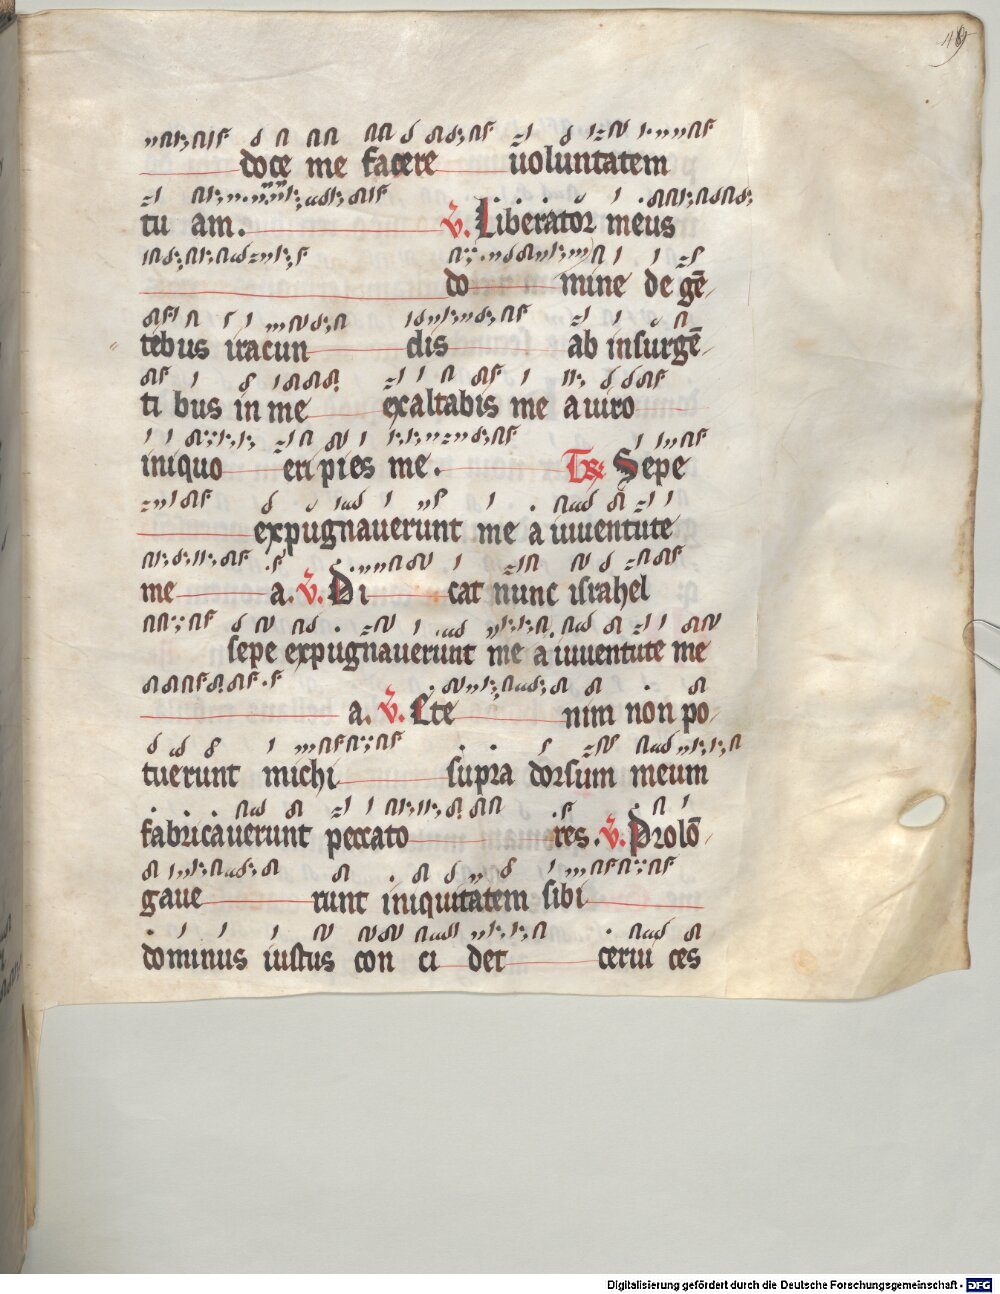 119
doce me facere uoluntatem
tu am. V. Liberator meus
do mine de gē
tebus iracun dis ab insurgē
ti bus in me exaltabis me a uiro
iniquo eri pies me. Tr Sepe
expugnauerunt me a iuuentute
me a. V. Di cat nunc israhel
sepe expugnauerunt me a iuuentute me
a. V. Ete nim non po
tuerunt michi supra dorsum meum
fabricauerunt peccato res. V. Prolō
gaue runt iniquitatem sibi
dominus iustus con ci det cerui ces
Digitalisierung gefördert durch die Deutsche Forschungsgemeinschaft - DFG